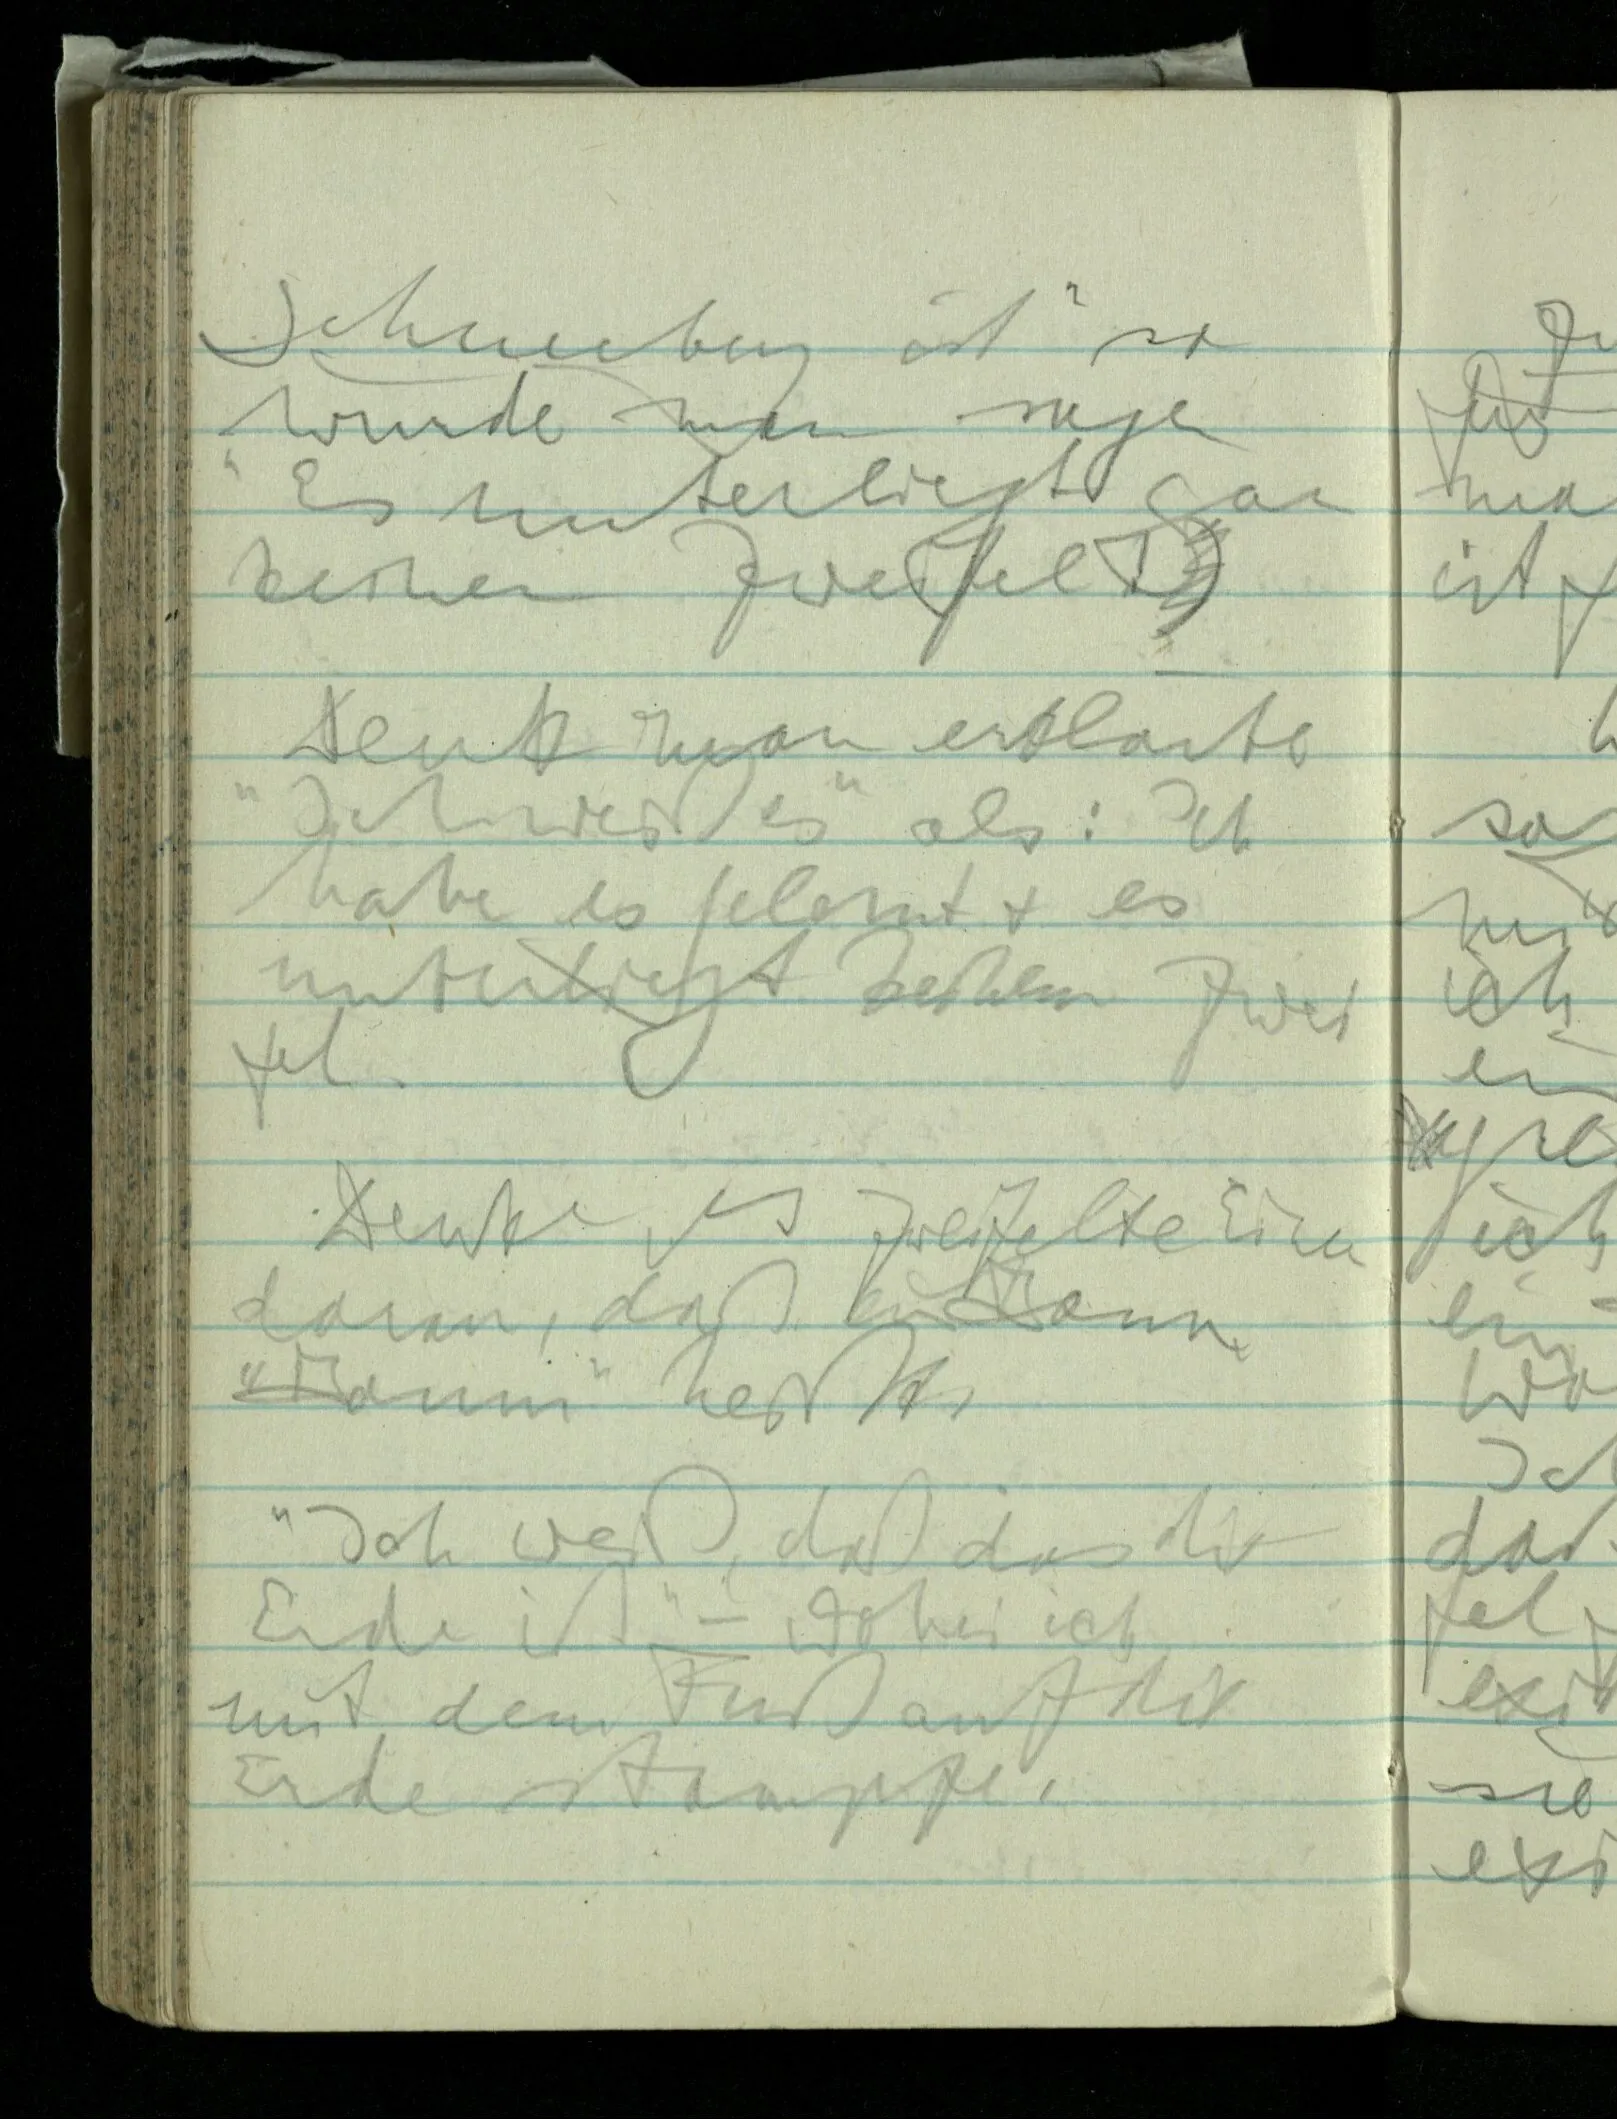 Schneeberg ist" so
wurde man sagen
"Es unterliegt gar
keinem Zweifel"
Denk man erklarte
"Ich weiß es" als: Ich
habe es gelernt + es
unterliegt keinem Zwei
fel.
Denke es zweifelte Einer
daran, daß
"Baum" heißt
"Ich weiß, daß das die
Erde ist" – wobei ich
mit dem Fuß auf die
Erde stampfe.
ist
ich
ich